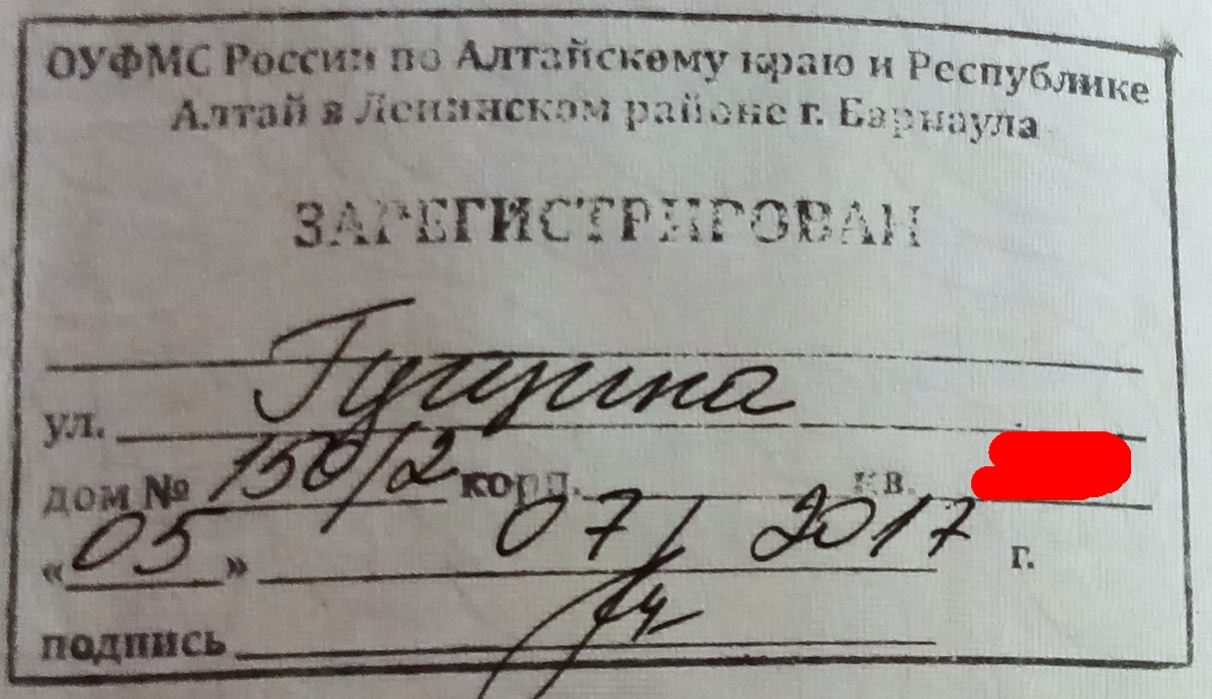 ОУФМС России по Алтайскому краю и Республике
Алтай в Ленинском районе г. Барнаула
ЗАРЕГИСТРИРОВАН
ул. Гущина
дом № 150/2 корп. кв.
«05» 07 2017 г.
подпись